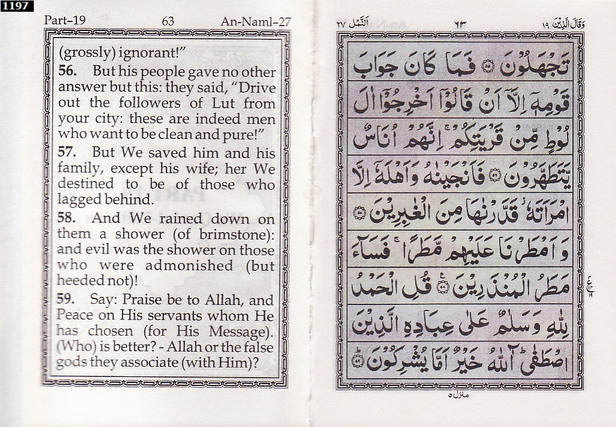 1197
Part-19 63 An-Naml-27
(grossly) ignorant!"
56. But his people gave no other
answer but this: they said, "Drive
out the followers of Lut from
your city: these are indeed men
who want to be clean and pure!"
57. But We saved him and his
family, except his wife; her We
destined to be of those who
lagged behind.
58. And We rained down on
them a shower (of brimstone):
and evil was the shower on those
who were admonished (but
heeded not)!
59. Say: Praise be to Allah, and
Peace on His servants whom He
has chosen (for His Message).
(Who) is better? - Allah or the false
gods they associate (with Him)?
وَقَالَ الَّذِيْنَ ١٩ ٦٣ اَلنَّمْل ٢٧
تَجْهَلُوْنَ ۝٥٥ فَمَا كَانَ جَوَابَ
قَوْمِهٖٓ اِلَّآ اَنْ قَالُوْٓا اَخْرِجُوْٓا اٰلَ
لُوْطٍ مِّنْ قَرْيَتِكُمْ ۚ اِنَّهُمْ اُنَاسٌ
يَّتَطَهَّرُوْنَ ۝٥٦ فَاَنْجَيْنٰهُ وَاَهْلَهٗٓ اِلَّا
امْرَاَتَهٗ ۡ قَدَّرْنٰهَا مِنَ الْغٰبِرِيْنَ ۝٥٧
وَاَمْطَرْنَا عَلَيْهِمْ مَّطَرًا ۚ فَسَآءَ
مَطَرُ الْمُنْذَرِيْنَ ۝٥٨ قُلِ الْحَمْدُ
لِلّٰهِ وَسَلٰمٌ عَلٰى عِبَادِهِ الَّذِيْنَ
اصْطَفٰى ؕ آٰللّٰهُ خَيْرٌ اَمَّا يُشْرِكُوْنَ ۝٥٩
منزل ٥